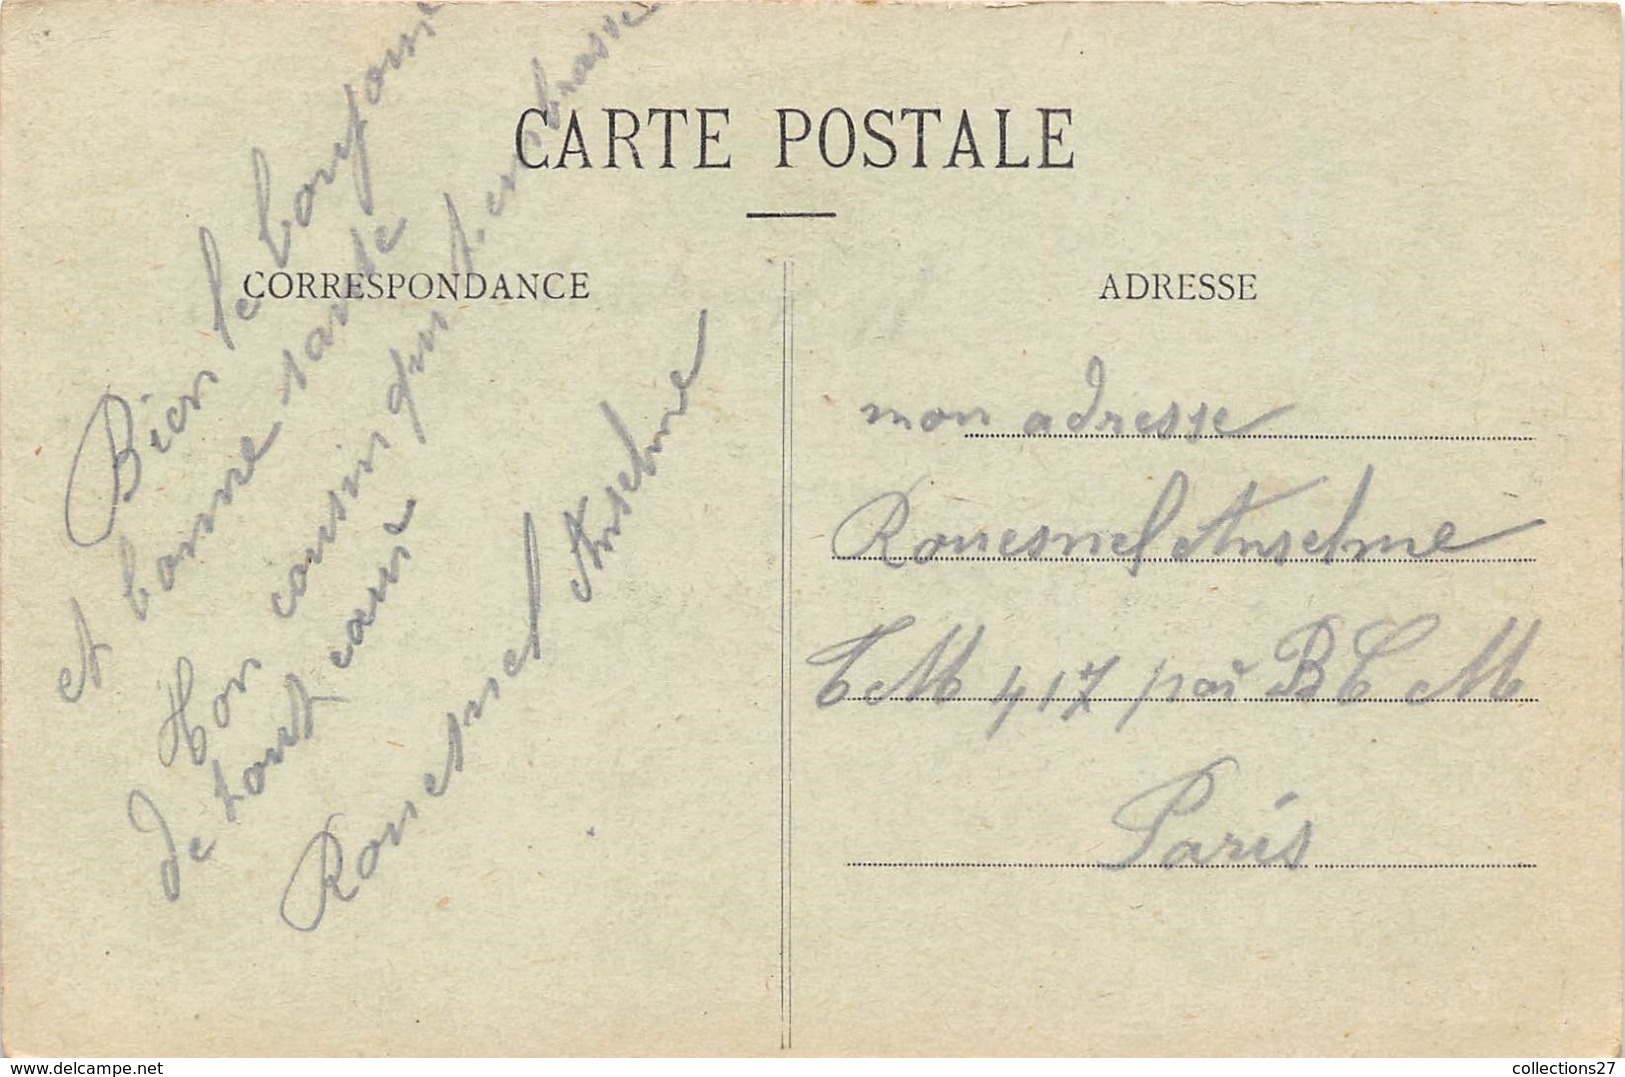 CARTE POSTALE
CORRESPONDANCE
Bien le bonjour
et bonne sante
Ton cousin qui t'embrasse
de tout cœur
Rouesnel Anselme
ADRESSE
mon adresse
Rouesnel Anselme
TM 417 par BCM
Paris
delcampe.net
collections27